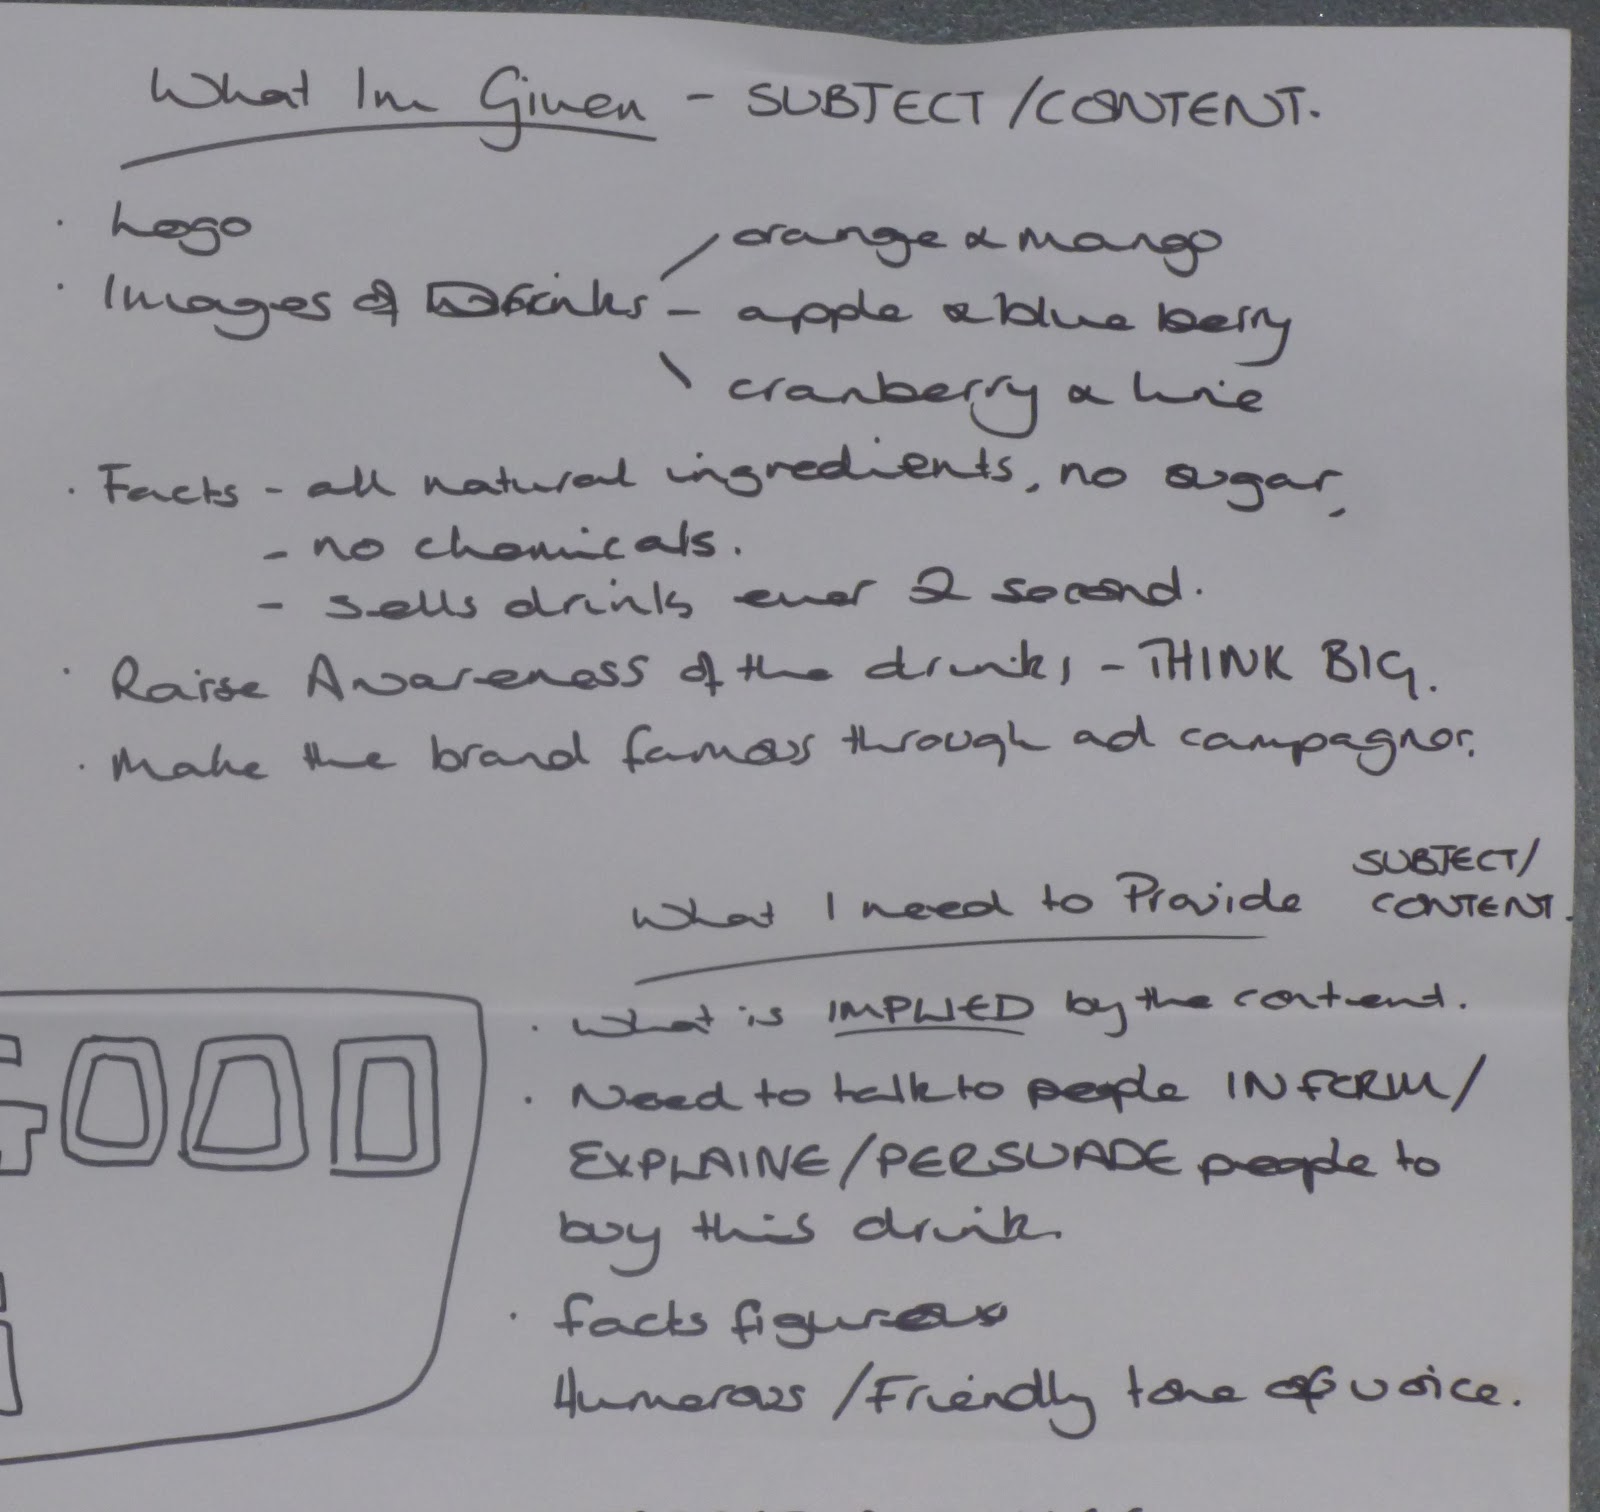 What Im Given - SUBJECT/CONTENT.
· Logo
· Images of Drinks - orange & mango
- apple & blue berry
- cranberry & lime
· Facts - all natural ingredients, no sugar,
- no chemicals.
- sells drinks ever 2 second.
· Raise Awareness of the drinks - THINK BIG.
· Make the brand famous through ad
What I need to Provide SUBJECT/
CONTENT.
· What is IMPLIED by the content.
· Need to talk to people INFORM/
EXPLAINE/PERSUADE people to
buy this drink.
· facts figures
Humerous/Friendly tone of voice.
GOOD